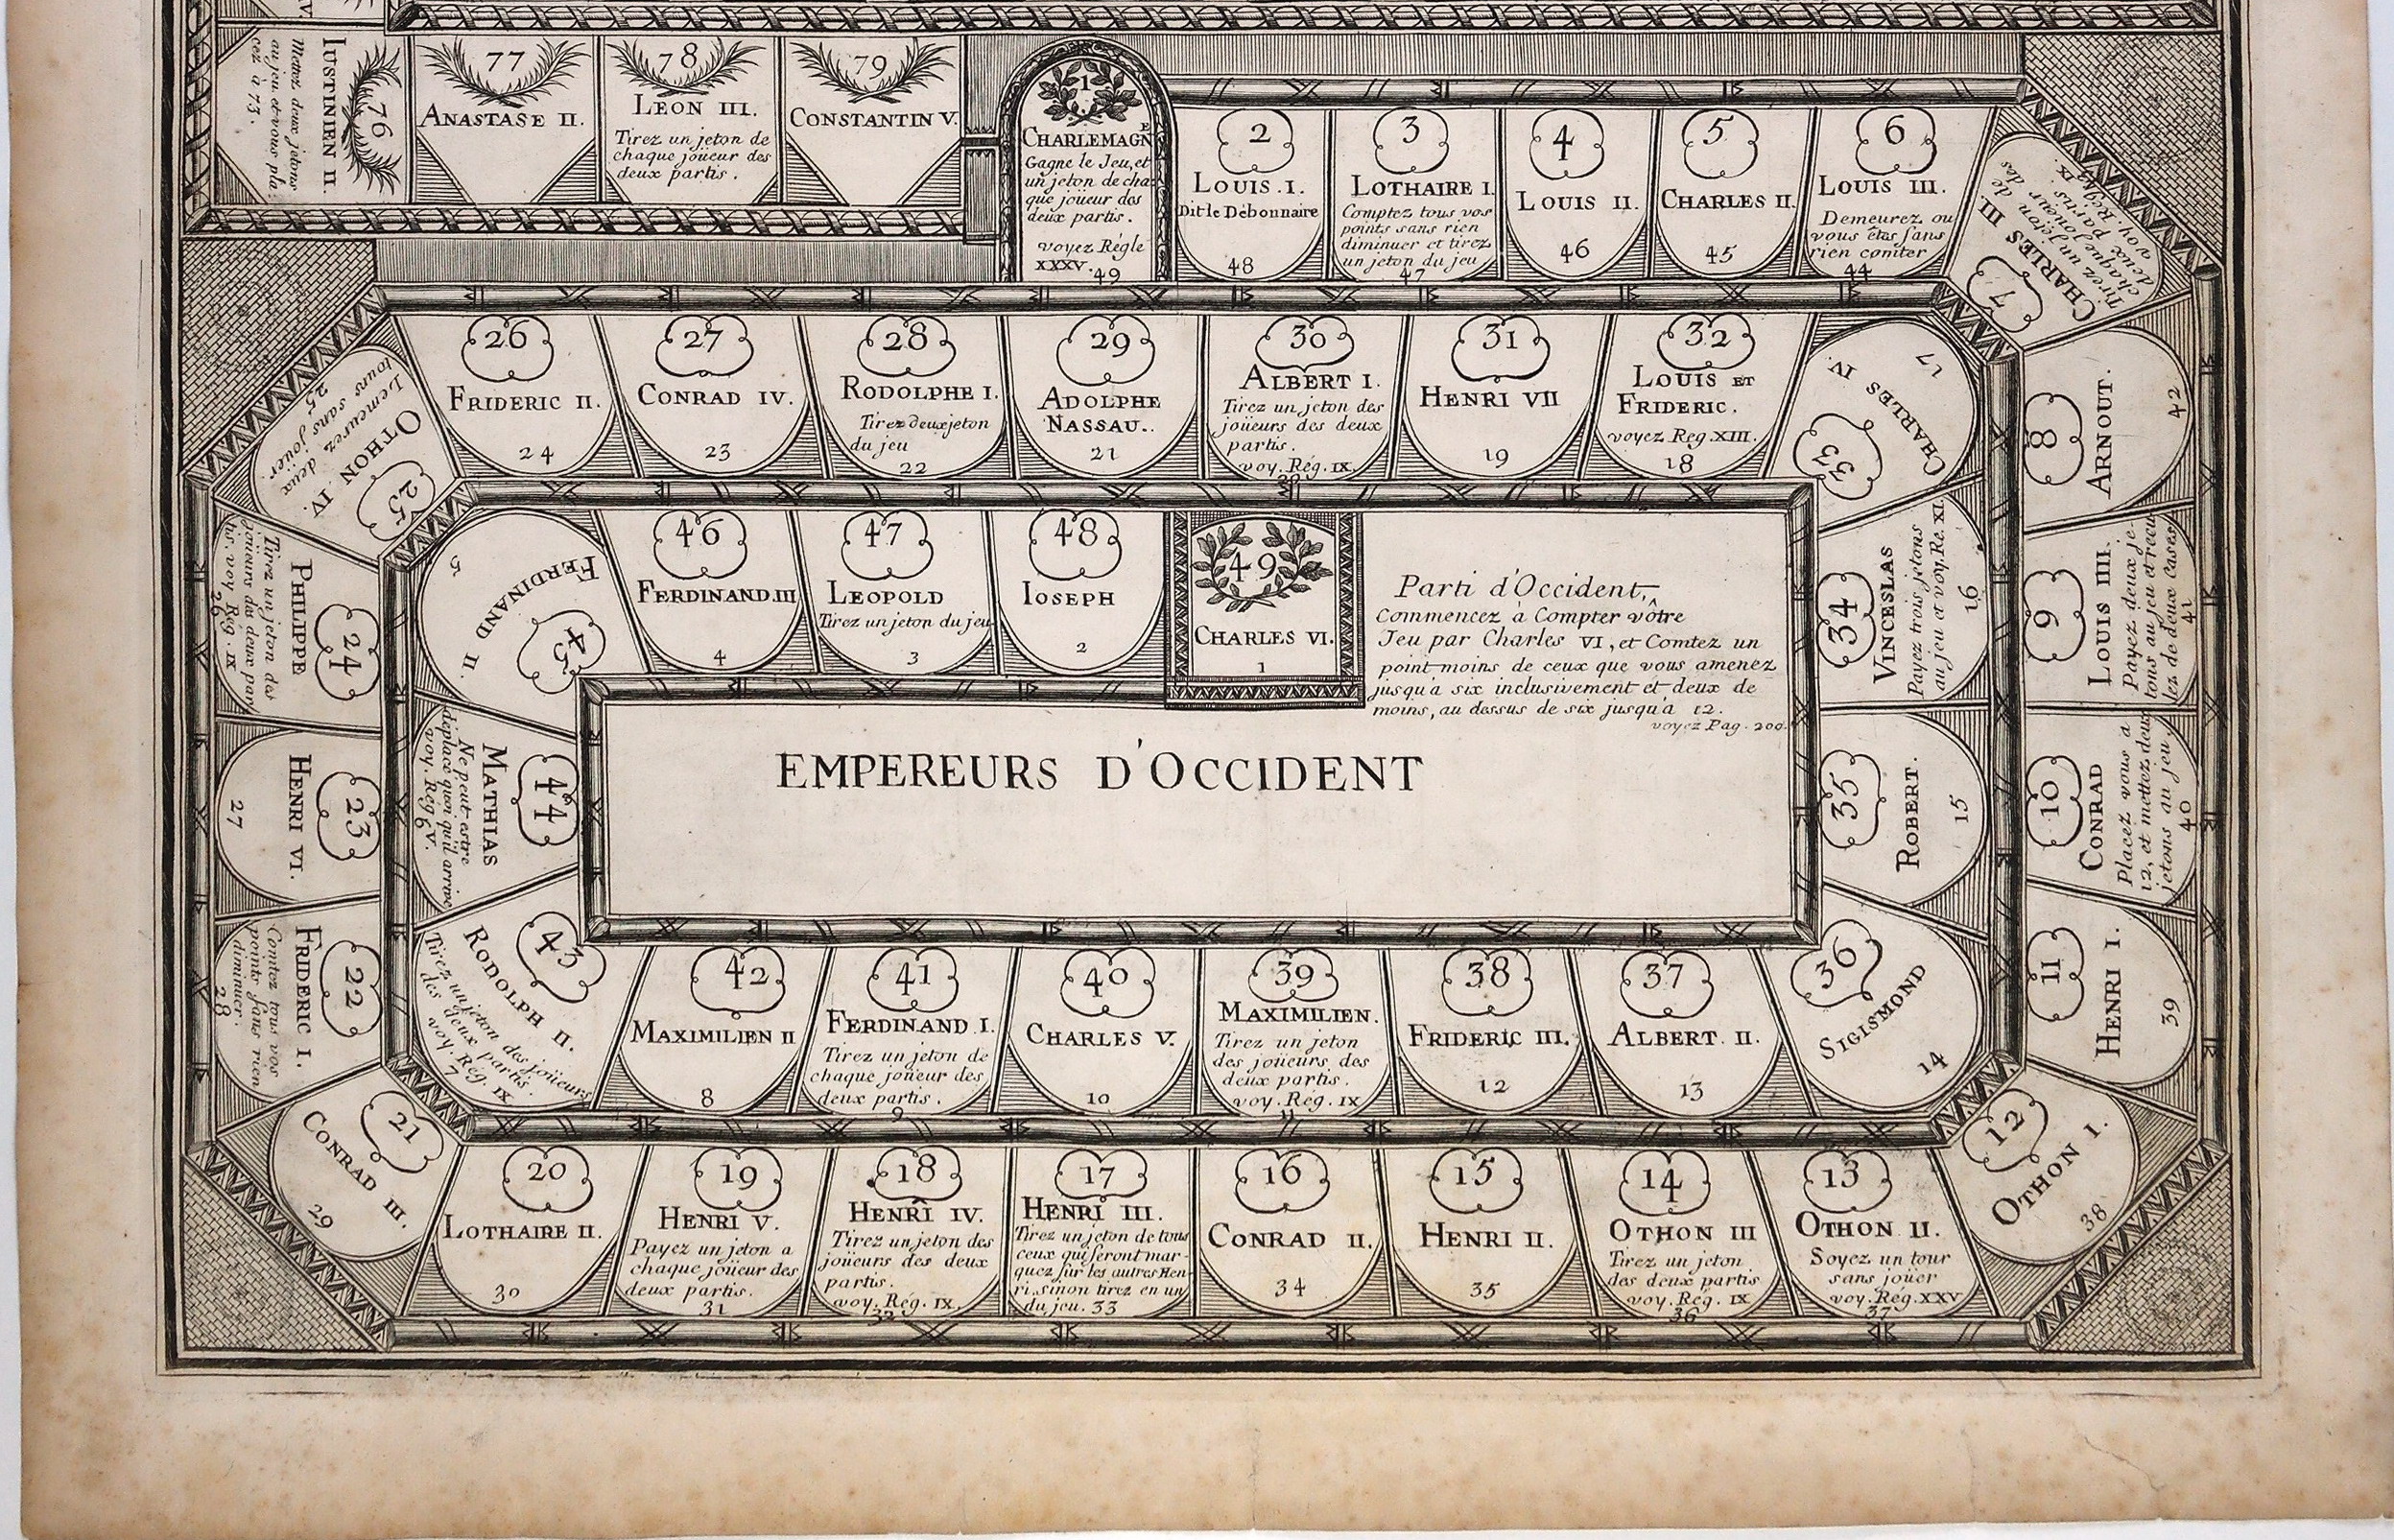 76
IUSTINIEN II.
Mettez deux jettons
au jeu et vous pla-
cez à 73.
77
ANASTASE II.
78
LEON III.
Tirez un jeton de
chaque joüeur des
deux partis.
79
CONSTANTIN V.
1
CHARLEMAGNE
Gagne le Jeu, et
un jeton de cha-
que joüeur des
deux partis.
voyez Régle
XXXV. 49
2
LOUIS I.
Dit le Débonnaire
48
3
LOTHAIRE I.
Comptez tous vos
points sans rien
diminuer et tirez
un jeton du jeu
47
4
LOUIS II.
46
5
CHARLES II.
45
6
LOUIS III.
Demeurez ou
vous êtes sans
rien comter
44
7
CHARLES III.
Tirez un jeton de
chaque joüeur des
deux partis
voy. Rég. IX.
8
ARNOUT.
42
9
LOUIS IIII.
Payez deux je-
tons au jeu et recu
lez de deux Cases
41
10
CONRAD
Placez vous a
12, et mettez deux
jetons au jeu
40
11
HENRI I.
39
12
OTHON I.
38
13
OTHON II.
Soyez un tour
sans joüer
voy. Rég. XXV
37
14
OTHON III
Tirez un jeton
des deux partis
voy. Rég. IX
36
15
HENRI II.
35
16
CONRAD II.
34
17
HENRI III.
Tirez un jeton de tous
ceux qui seront mar-
quez sur les autres Hen-
ri, sinon tirez en un
du jeu. 33
18
HENRI IV.
Tirez un jeton des
joüeurs des deux
partis.
voy. Rég. IX.
32
19
HENRI V.
Payez un jeton a
chaque joüeur des
deux partis.
31
20
LOTHAIRE II.
30
21
CONRAD III.
29
22
FRIDERIC I.
Comtez tous vos
points sans rien
diminuer.
28
23
HENRI VI.
27
24
PHILIPPE
Tirez un jeton des
joüeurs des deux par
tis. voy. Rég. IX
26
25
OTHON IV.
Demeurez deux
tours sans joüer
25
26
FRIDERIC II.
24
27
CONRAD IV.
23
28
RODOLPHE I.
Tirez deux jeton
du jeu
22
29
ADOLPHE
NASSAU..
21
30
ALBERT I.
Tirez un jeton des
joüeurs des deux
partis.
voy. Rég. IX.
20
31
HENRI VII
19
32
LOUIS ET
FRIDERIC.
voyez Reg. XIII.
18
33
CHARLES IV.
17
34
VINCESLAS
Payez trois jetons
au jeu et voy. Re. XI.
16
35
ROBERT.
15
36
SIGISMOND
14
37
ALBERT II.
13
38
FRIDERIC III.
12
39
MAXIMILIEN.
Tirez un jeton
des joüeurs des
deux partis.
voy. Rég. IX
11
40
CHARLES V.
10
41
FERDINAND I.
Tirez un jeton de
chaque joüeur des
deux partis.
9
42
MAXIMILIEN II
8
43
RODOLPH II.
Tirez un jeton des joüeurs
des deux partis.
voy. Rég. IX
7
44
MATHIAS
Ne peut estre
déplacé quoi qu'il arrive
voy. Rég. V.
6
45
FERDINAND II.
5
46
FERDINAND.III
4
47
LEOPOLD
Tirez un jeton du jeu
3
48
IOSEPH
2
49
CHARLES VI.
1
Parti d'Occident,
Commencez à Compter vôtre
Jeu par Charles VI, et Comtez un
point moins de ceux que vous amenez
jusqu'à six inclusivement et deux de
moins, au dessus de six jusqu'à 12.
voyez Pag. 200.
EMPEREURS D'OCCIDENT